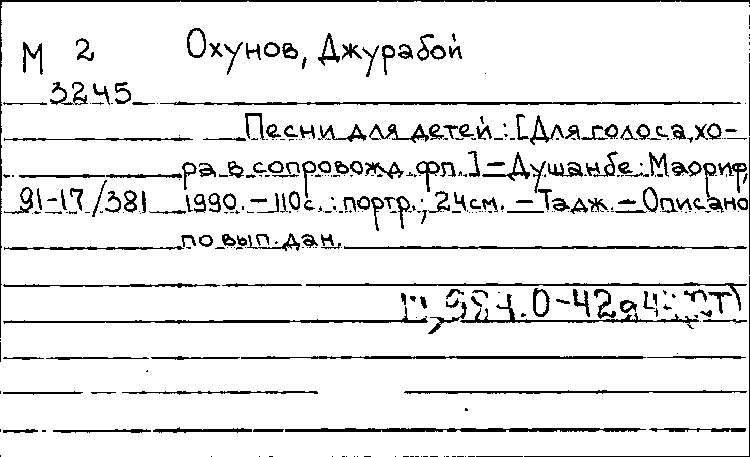 М 2 Охунов, Джурабой
3245
Песни для детей : [Для голоса, хо-
ра в сопровожд. фп.] – Душанбе : Маориф,
91-17/381 1990. – 110 с. : портр. ; 24 см. – Тадж. – Описано
по вып. дан.